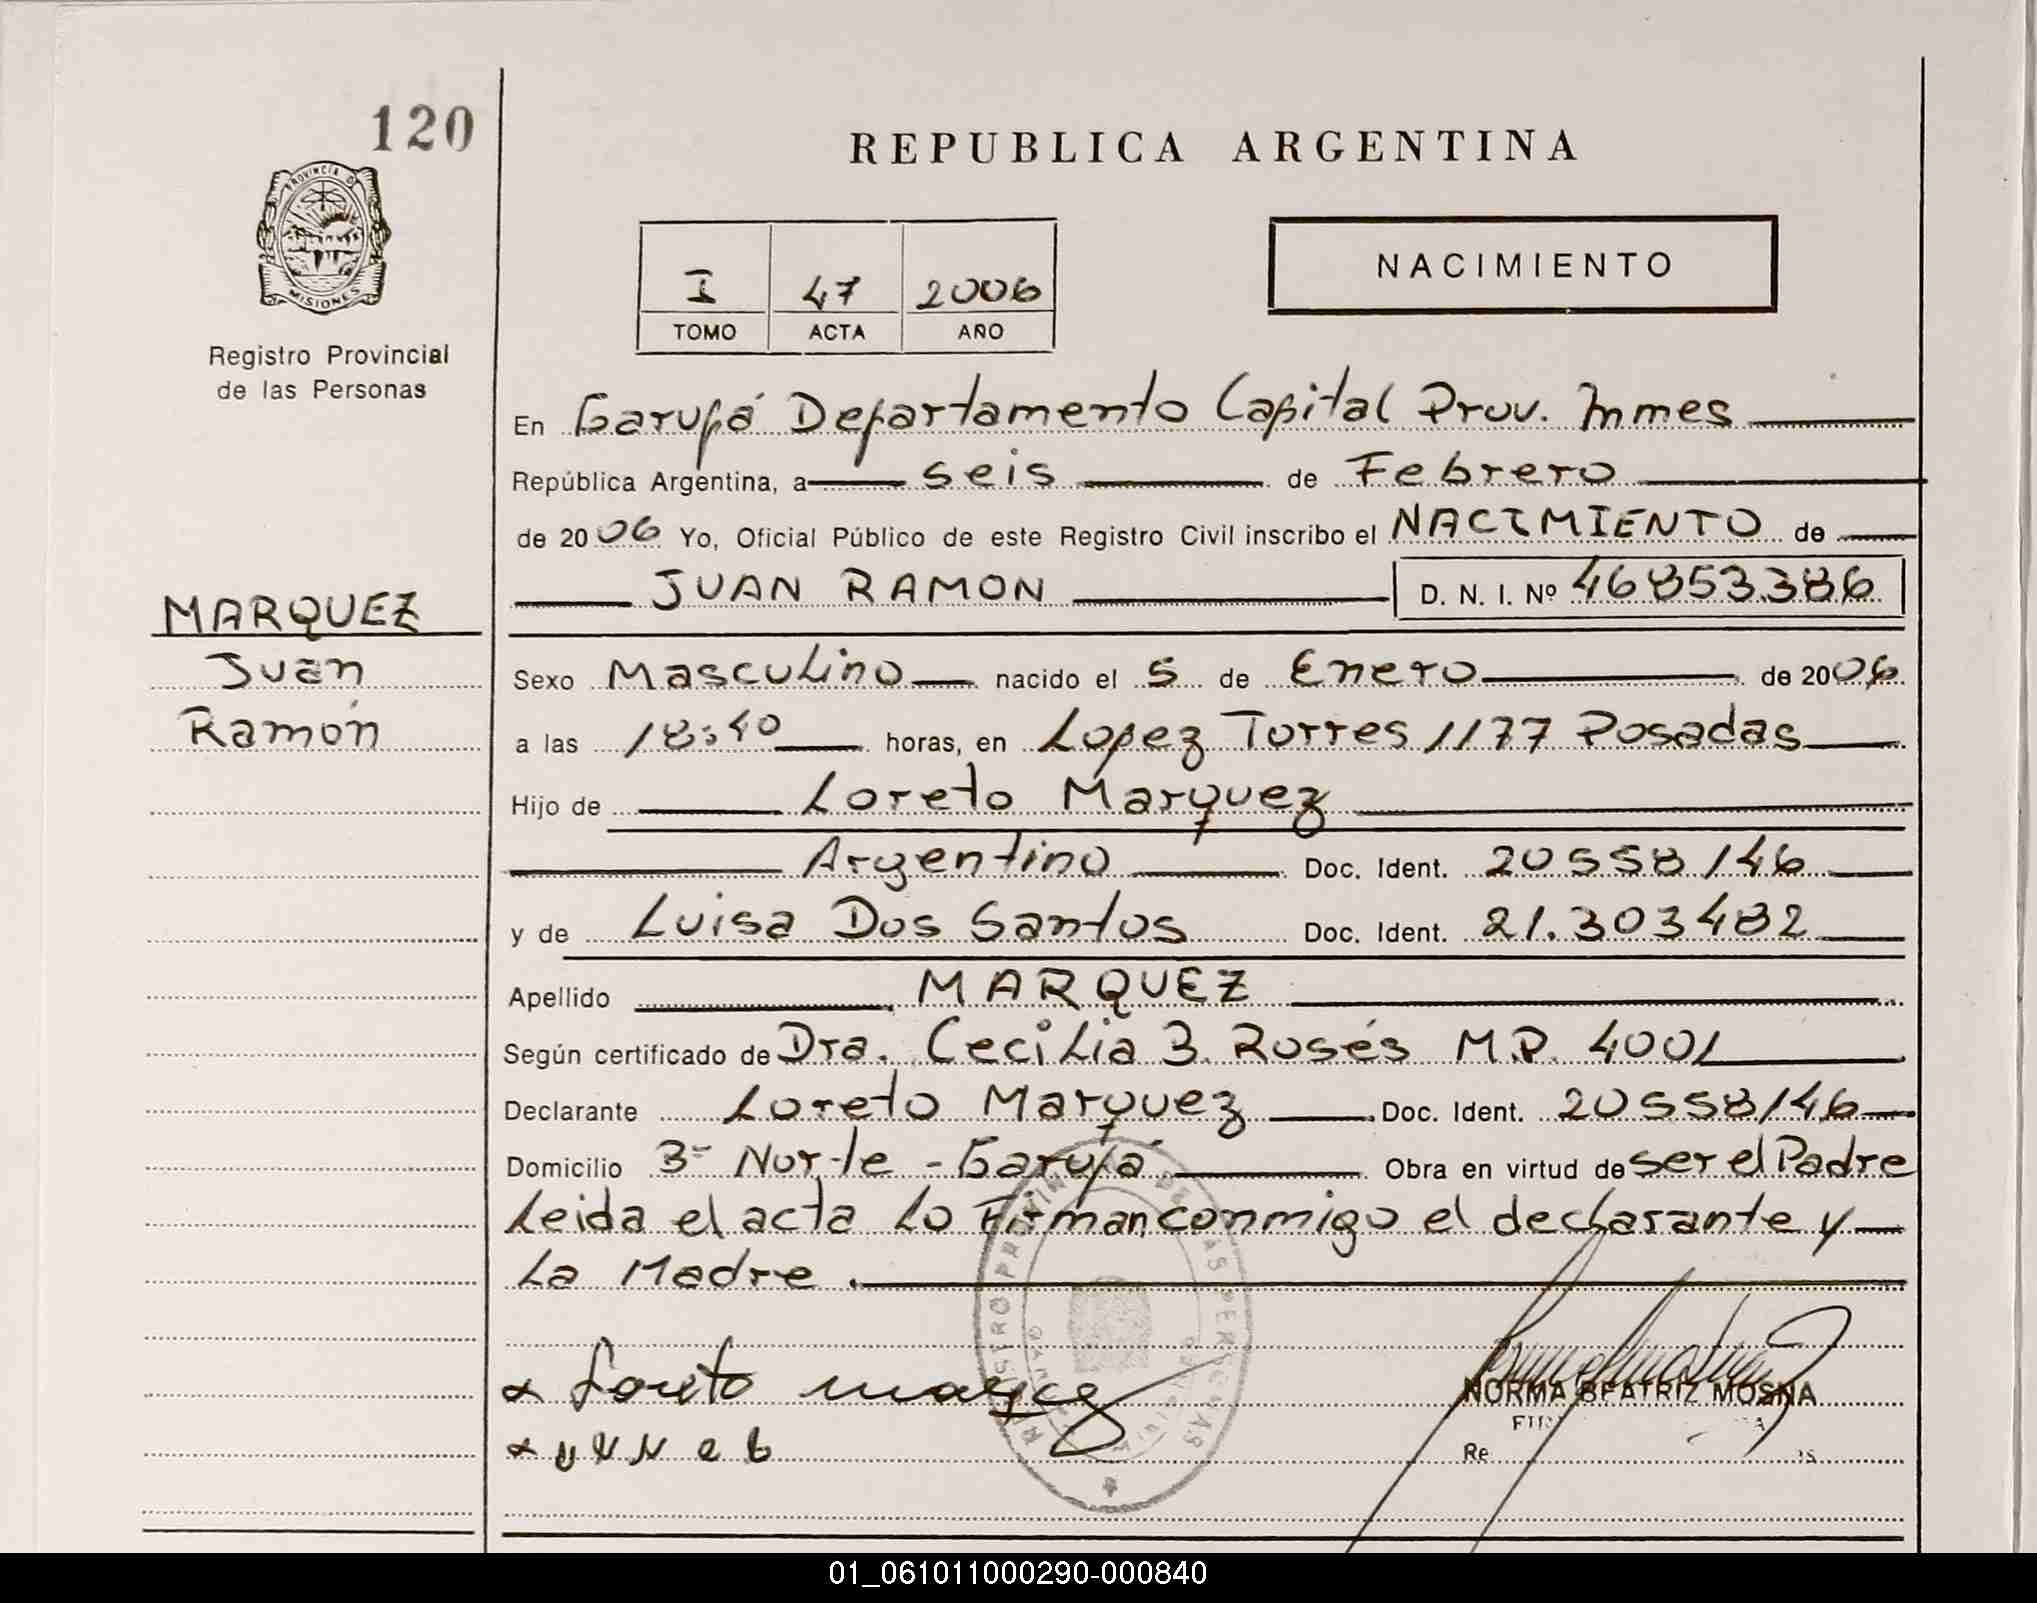 120
REPUBLICA ARGENTINA
PROVINCIA DE
MISIONES
Registro Provincial
de las Personas
I 47 2006
TOMO ACTA AÑO
NACIMIENTO
En Garupá Departamento Capital Prov. Mnnes
República Argentina, a seis de Febrero
de 2006 Yo, Oficial Público de este Registro Civil inscribo el NACIMIENTO de
JUAN RAMON D. N. I. Nº 46853386
MARQUEZ
Juan
Ramón
Sexo Masculino nacido el 5 de Enero de 2006
a las 18:40 horas, en Lopez Torres 1177 Posadas
Hijo de Loreto Marquez
Argentino Doc. Ident. 20558146
y de Luisa Dos Santos Doc. Ident. 21.303482
Apellido MARQUEZ
Según certificado de Dra. Cecilia B. Rosés M.P. 4001
Declarante Loreto Marquez Doc. Ident. 20558146
Domicilio 3- Norte - Garupá Obra en virtud de ser el Padre
Leida el acta Lo Firman conmigo el declarante y
La Madre.
Loreto
NORMA BEATRIZ MOSNA
01_061011000290-000840